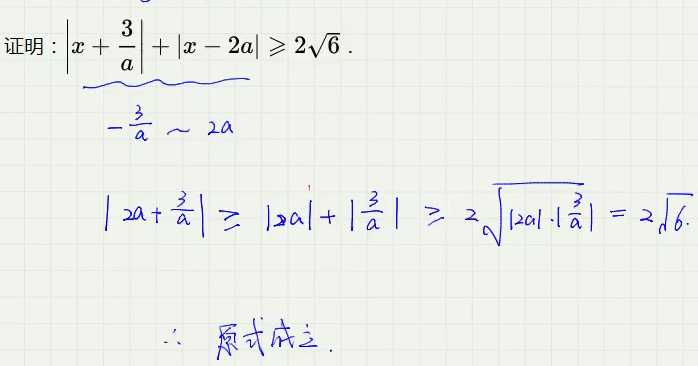 证明：|x + 3/a| + |x − 2a| ⩾ 2√6 .
−3/a ～ 2a
|2a + 3/a| ≥ |2a| + |3/a| ≥ 2√(|2a|·|3/a|) = 2√6.
∴ 原式成立.